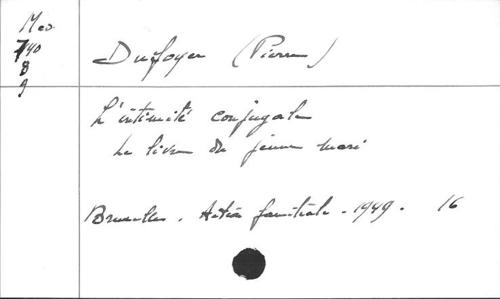 Med
740
8
9
Dufoyer (Pierre)
L'intimité conjugale
Le livre du jeune mari
Bruxelles. Action familiale. 1949. 16